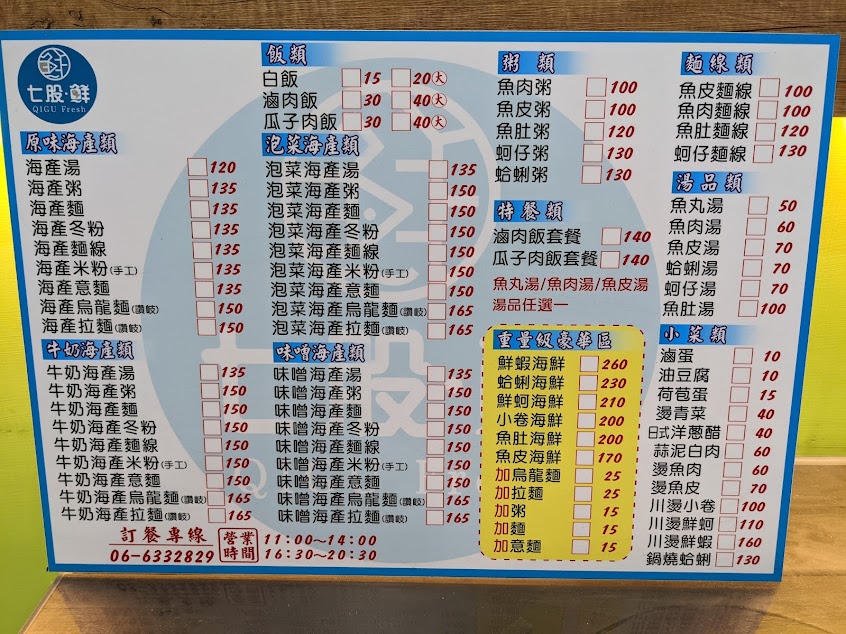 七股·鮮
QIGU Fresh
飯類
白飯 15 20大
滷肉飯 30 40大
瓜子肉飯 30 40大
原味海產類
海產湯 120
海產粥 135
海產麵 135
海產冬粉 135
海產麵線 135
海產米粉(手工) 135
海產意麵 135
海產烏龍麵(讚岐) 150
海產拉麵(讚岐) 150
泡菜海產類
泡菜海產湯 135
泡菜海產粥 150
泡菜海產麵 150
泡菜海產冬粉 150
泡菜海產麵線 150
泡菜海產米粉(手工) 150
泡菜海產意麵 150
泡菜海產烏龍麵(讚岐) 165
泡菜海產拉麵(讚岐) 165
牛奶海產類
牛奶海產湯 135
牛奶海產粥 150
牛奶海產麵 150
牛奶海產冬粉 150
牛奶海產麵線 150
牛奶海產米粉(手工) 150
牛奶海產意麵 150
牛奶海產烏龍麵(讚岐) 165
牛奶海產拉麵(讚岐) 165
味噌海產類
味噌海產湯 135
味噌海產粥 150
味噌海產麵 150
味噌海產冬粉 150
味噌海產麵線 150
味噌海產米粉(手工) 150
味噌海產意麵 150
味噌海產烏龍麵(讚岐) 165
味噌海產拉麵(讚岐) 165
訂餐專線
06-6332829
營業時間
11:00~14:00
16:30~20:30
粥類
魚肉粥 100
魚皮粥 100
魚肚粥 120
蚵仔粥 130
蛤蜊粥 130
特餐類
滷肉飯套餐 140
瓜子肉飯套餐 140
魚丸湯/魚肉湯/魚皮湯
湯品任選一
重量級豪華區
鮮蝦海鮮 260
蛤蜊海鮮 230
鮮蚵海鮮 210
小卷海鮮 200
魚肚海鮮 200
魚皮海鮮 170
加烏龍麵 25
加拉麵 25
加粥 15
加麵 15
加意麵 15
麵線類
魚皮麵線 100
魚肉麵線 100
魚肚麵線 120
蚵仔麵線 130
湯品類
魚丸湯 50
魚肉湯 60
魚皮湯 70
蛤蜊湯 70
蚵仔湯 70
魚肚湯 100
小菜類
滷蛋 10
油豆腐 10
荷苞蛋 15
燙青菜 40
日式洋蔥醋 40
蒜泥白肉 60
燙魚肉 60
燙魚皮 70
川燙小卷 100
川燙鮮蚵 110
川燙鮮蝦 160
鍋燒蛤蜊 130